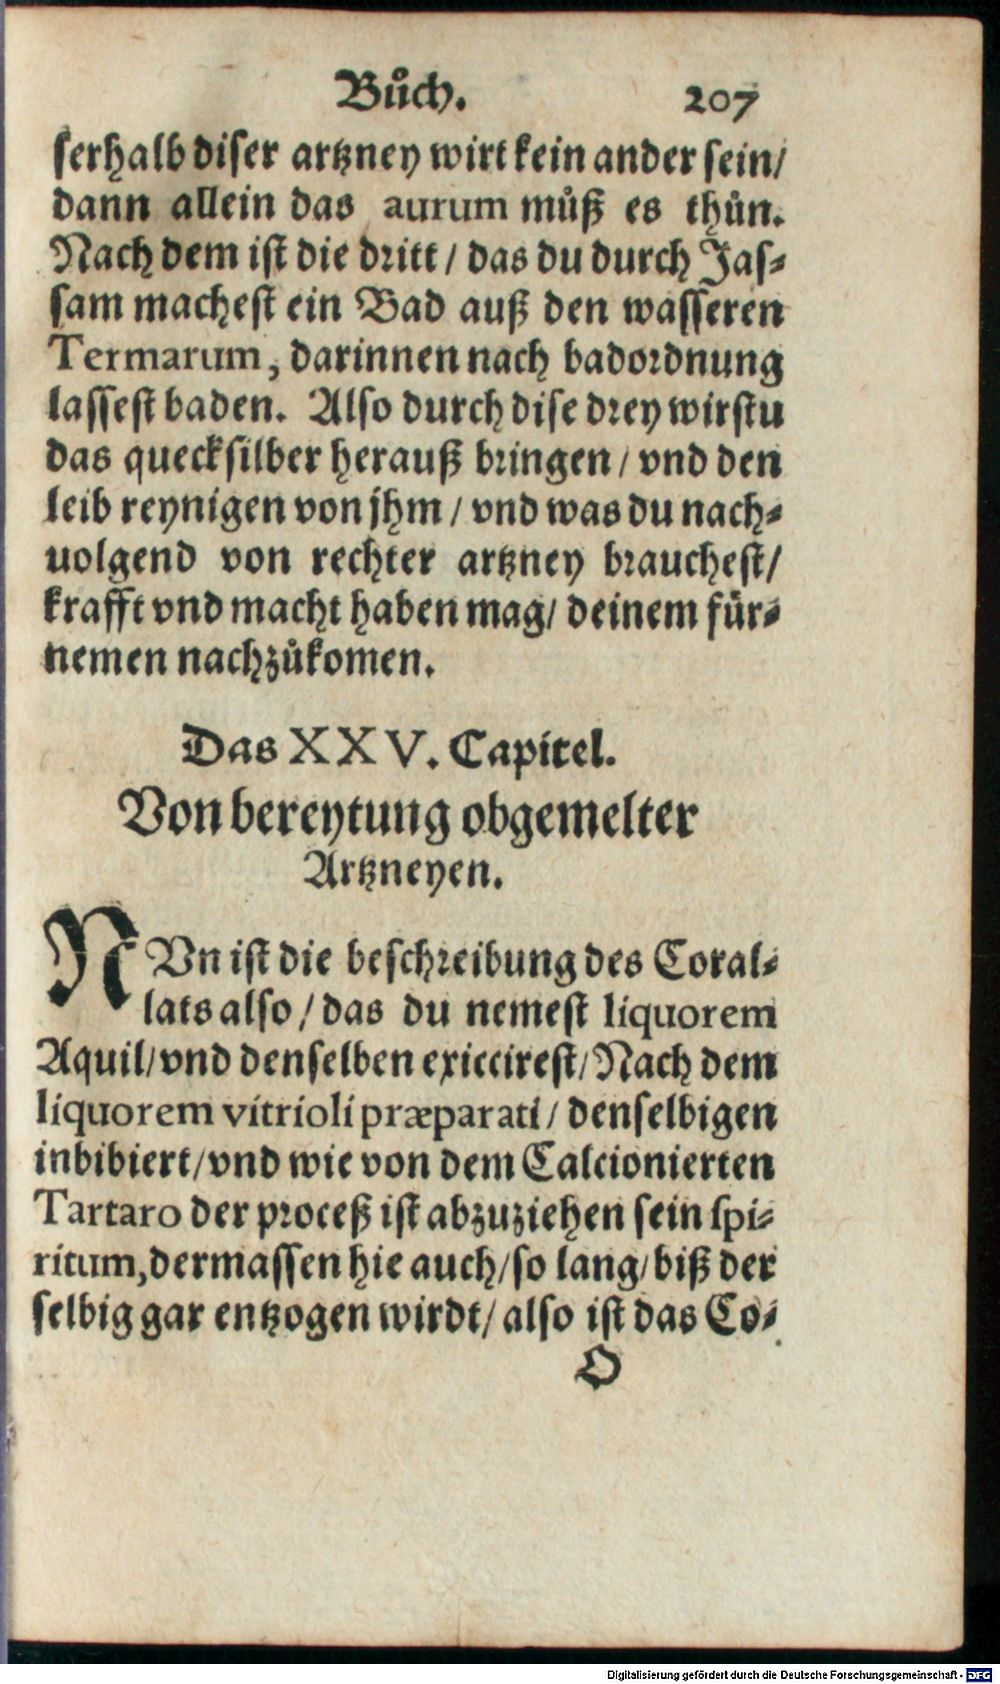 Bůch. 207
serhalb diser artzney wirt kein ander sein/
dann allein das aurum můß es thůn.
Nach dem ist die dritt / das du durch Jas-
sam machest ein Bad auß den wasseren
Termarum, darinnen nach badordnung
lassest baden. Also durch dise drey wirstu
das quecksilber herauß bringen / vnd den
leib reynigen von jhm / vnd was du nach-
uolgend von rechter artzney brauchest/
krafft vnd macht haben mag/ deinem für-
nemen nachzůkomen.
Das XXV. Capitel.
Von bereytung obgemelter
Artzneyen.
NVn ist die beschreibung des Coral-
lats also / das du nemest liquorem
Aquil/vnd denselben exiccirest/Nach dem
liquorem vitrioli præparati/ denselbigen
inbibiert/vnd wie von dem Calcionierten
Tartaro der proceß ist abzuziehen sein spi-
ritum,dermassen hie auch/so lang/biß der
selbig gar entzogen wirdt/ also ist das Co-
O
Digitalisierung gefördert durch die Deutsche Forschungsgemeinschaft - DFG